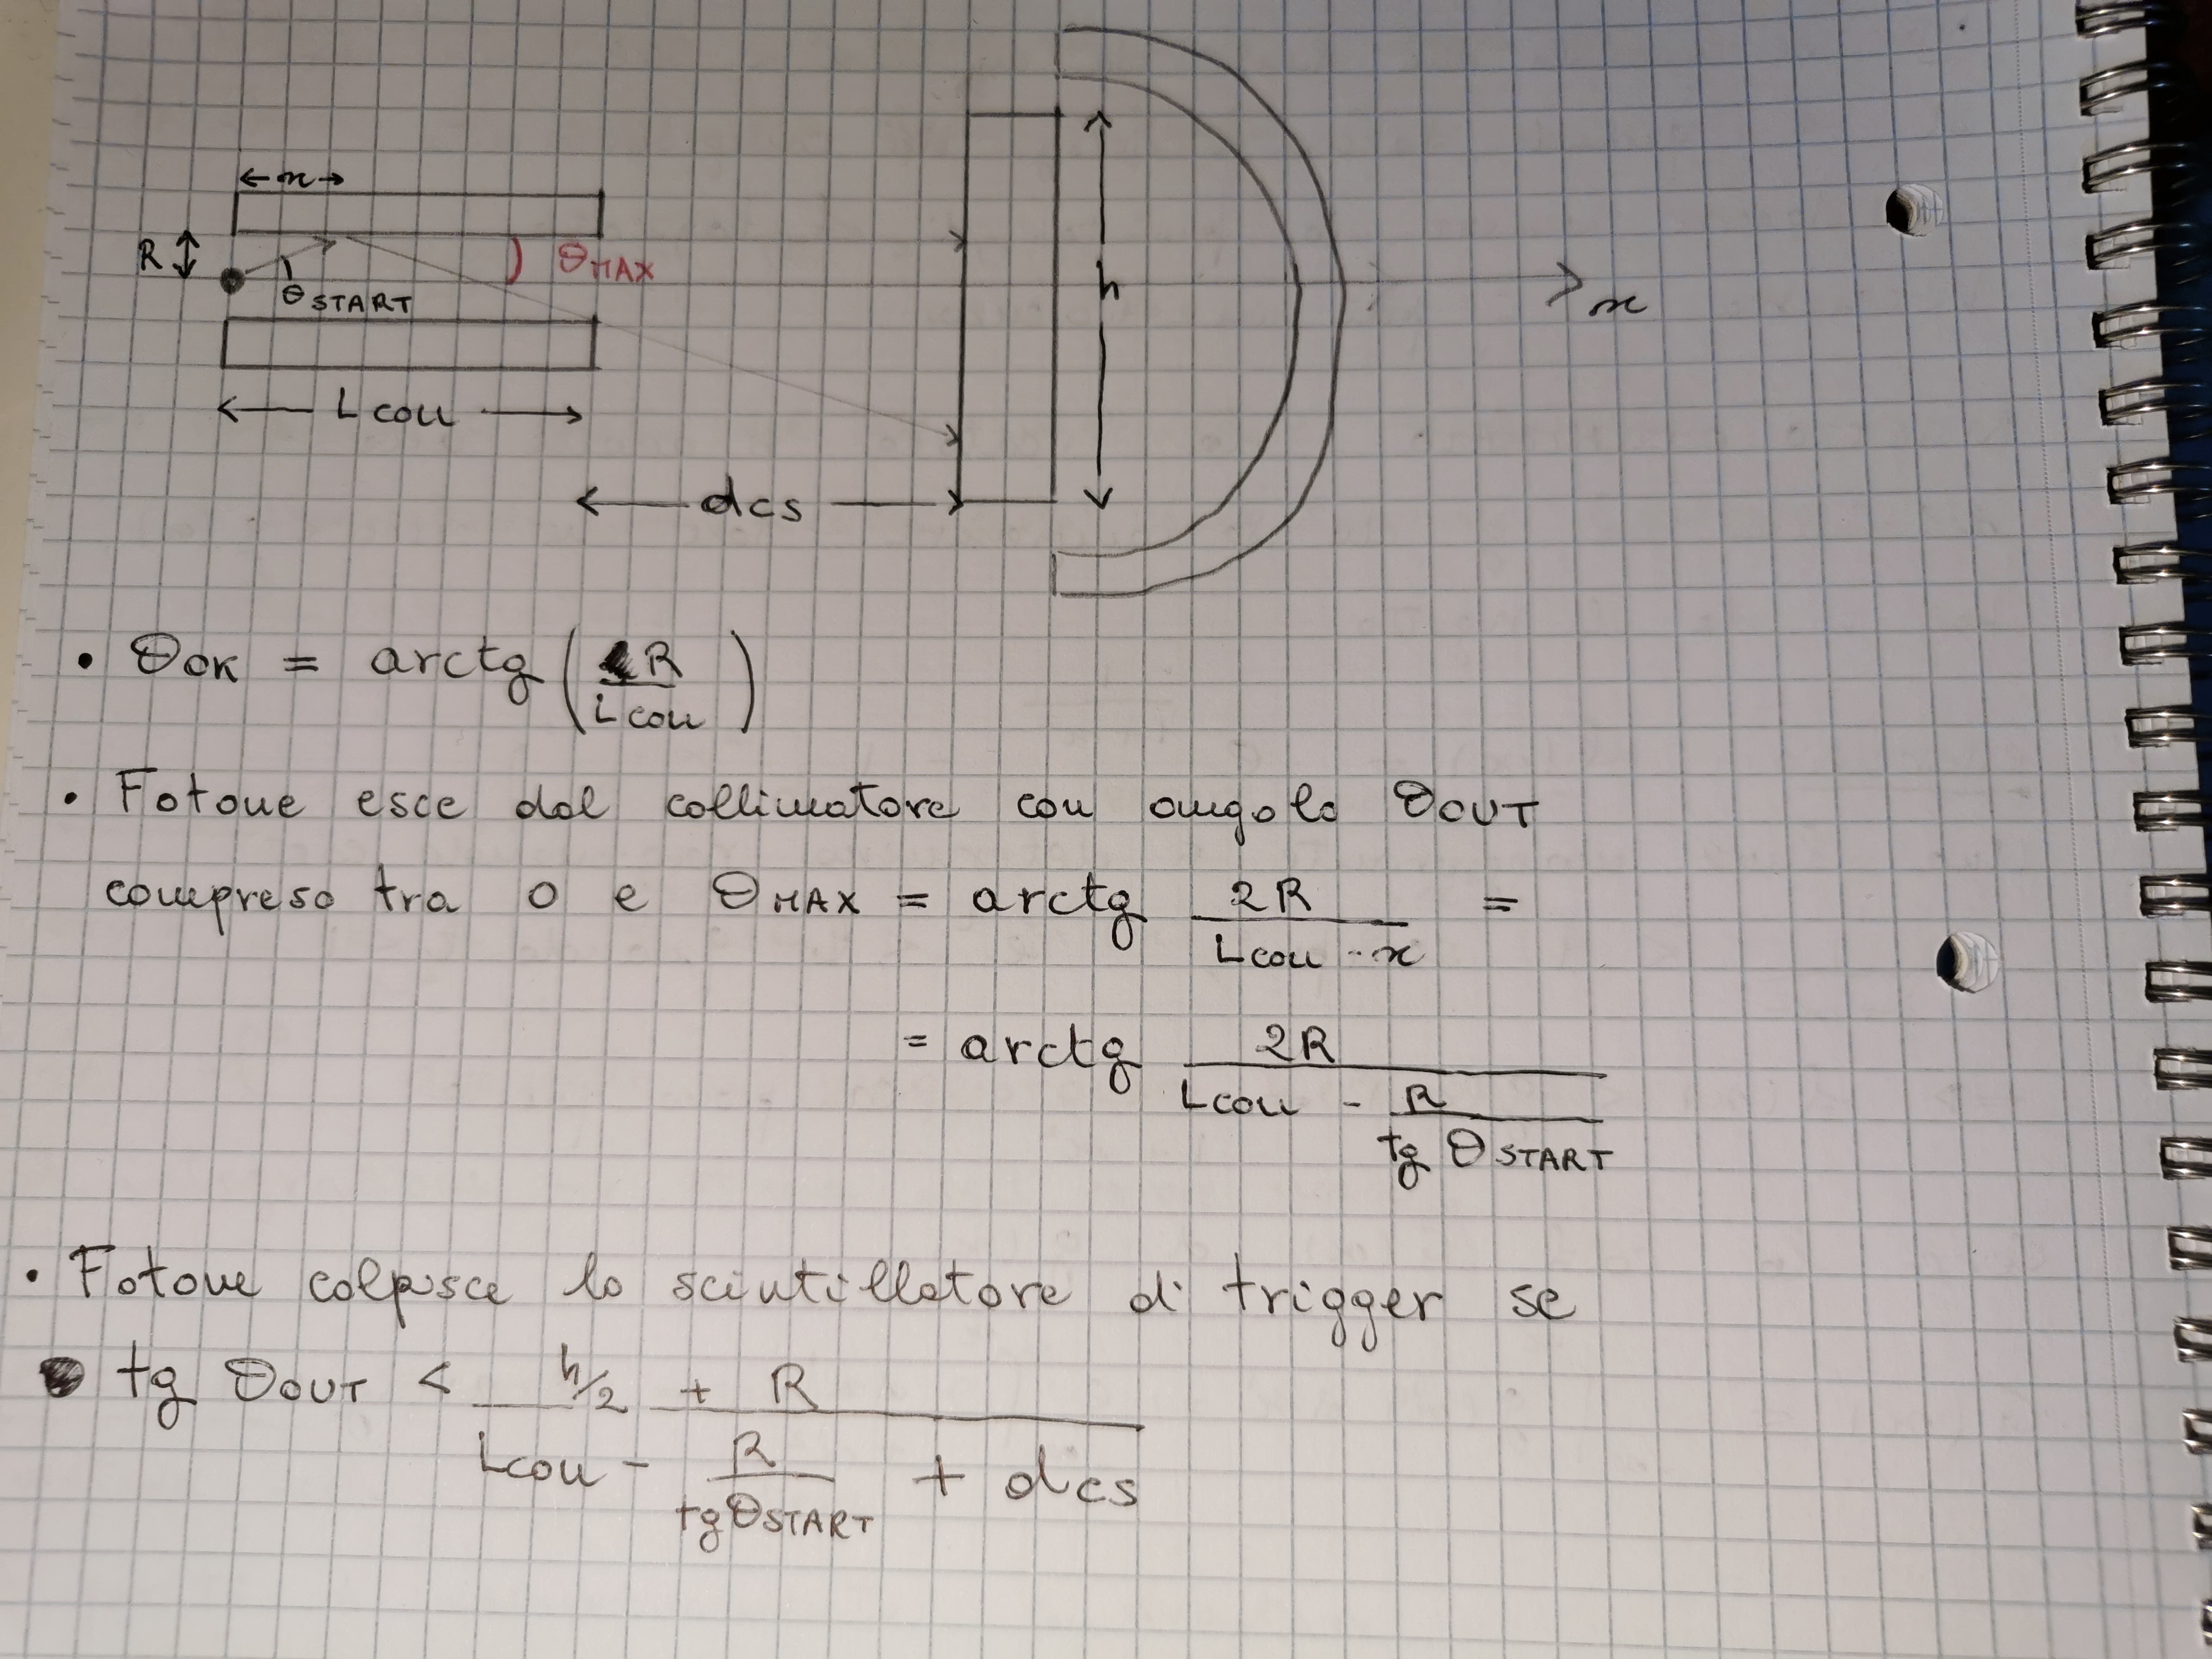 ← x →
R
θ MAX
θ START
h
x
← L coll →
← dcs →
• θ OK = arctg ( R / L coll )
• Fotone esce dal collimatore con angolo θ OUT
compreso tra 0 e θ MAX = arctg 2R / L coll - x =
= arctg 2R / L coll - R / tg θ START
• Fotone colpisce lo scintillatore di trigger se
tg θ OUT < h/2 + R / L coll - R / tg θ START + dcs